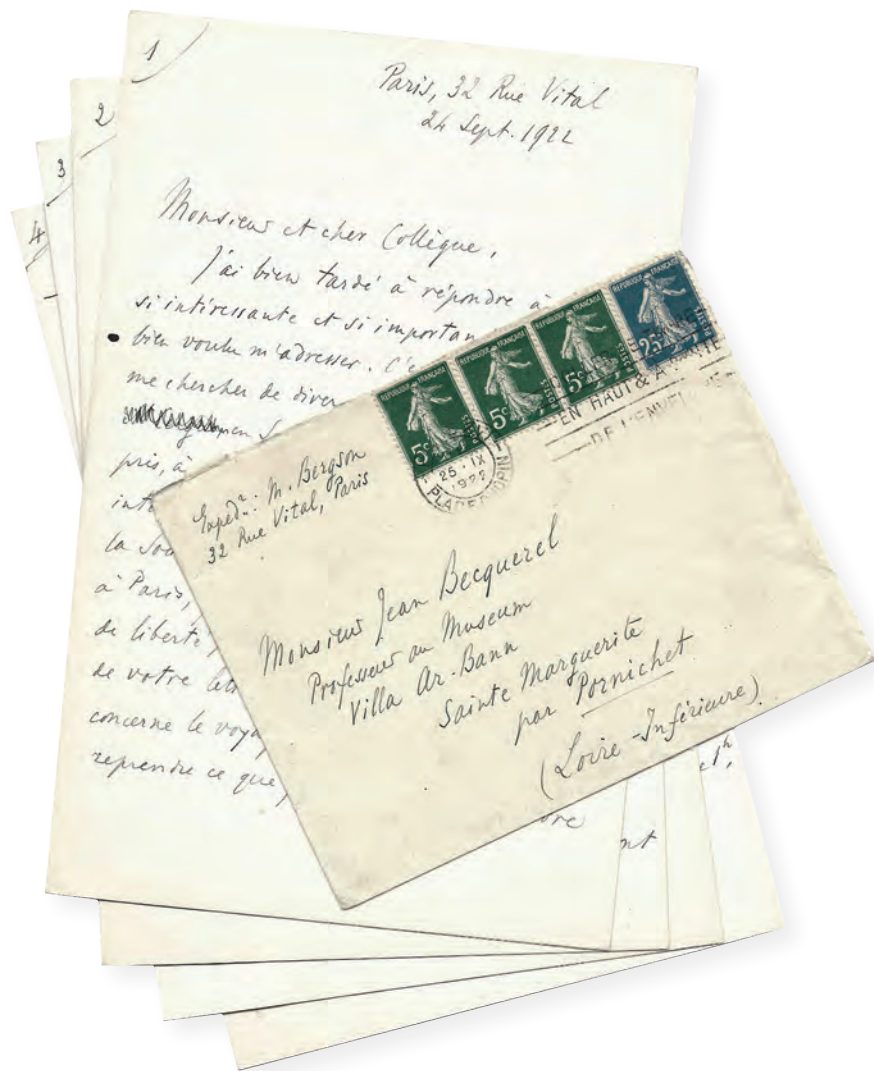 1
Paris, 32 Rue Vital
24 Sept. 1922
2
3
4
Monsieur et cher Collègue,
J'ai bien tardé à répondre à
si intéressante et si importan
bien voulu m'adresser. C'e
me chercher de diver
pris, à
inte
la
à Paris,
de liberté,
de votre
concerne le voya
reprendre ce que
nt
REPUBLIQUE FRANÇAISE
POSTES
5c
REPUBLIQUE FRANÇAISE
POSTES
5c
REPUBLIQUE FRANÇAISE
POSTES
5c
REPUBLIQUE FRANÇAISE
POSTES
25c
EN HAUT & A
DE L'ENVEL
25 · IX
1922
Expedr: M. Bergson
32 Rue Vital, Paris
Monsieur Jean Becquerel
Professeur au Museum
Villa Ar-Bann
Sainte Marguerite
par Pornichet
(Loire-Inférieure)